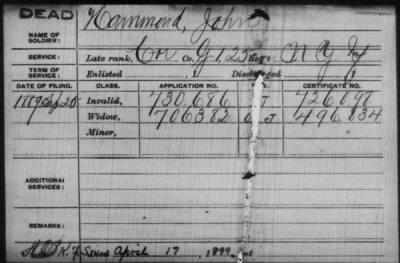 DEAD
Hammond, John
NAME OF SOLDIER:
SERVICE: Late rank, Cor Co. G, 125 Reg't N Y Inf
TERM OF SERVICE: Enlisted , 1 Discharged , 1
DATE OF FILING. CLASS. APPLICATION NO. CERTIFICATE NO.
1889 Sep 25 Invalid, 730.686 J 726.898
Widow, 706382 J 496.834
Minor,
ADDITIONAL SERVICES:
REMARKS:
Died April 17, 1899,